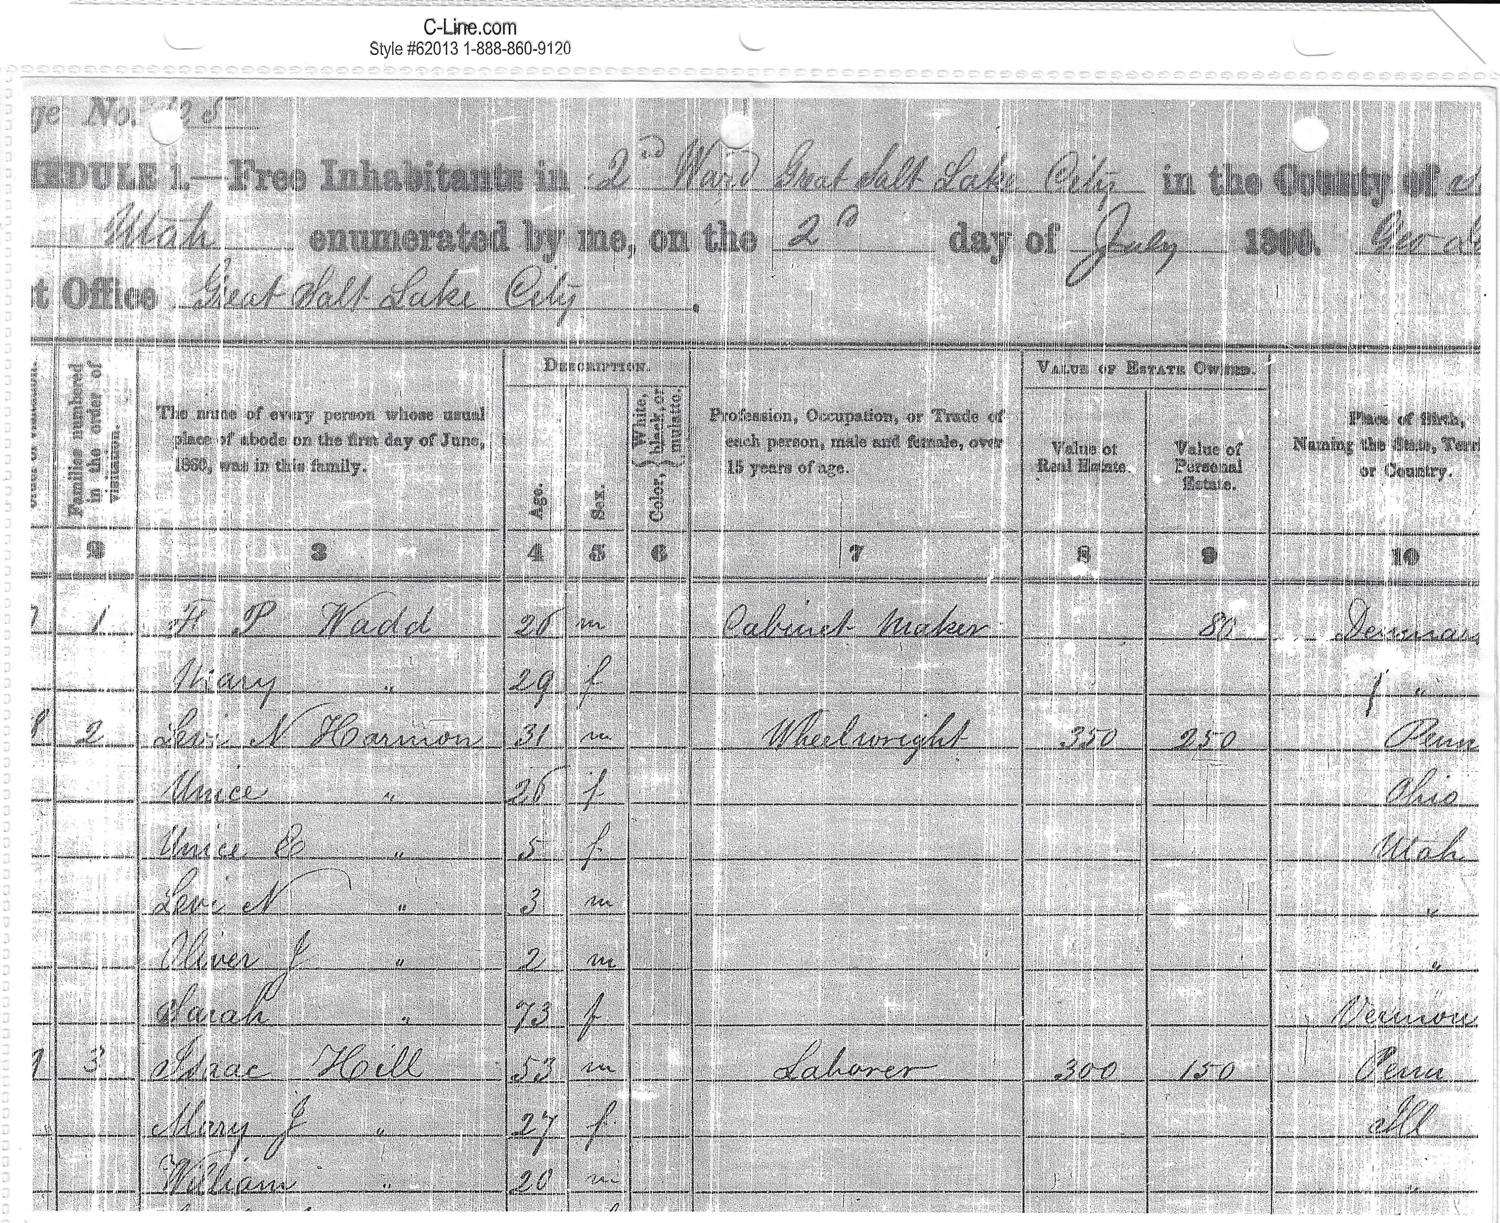 C-Line.com
Style #62013 1-888-860-9120
ge No. 25
EDULE 1.—Free Inhabitants in 2nd Ward Great Salt Lake City in the County of
Utah enumerated by me, on the 2d day of July 1860. Geo
t Office Great Salt Lake City.
Families numbered in the order of visitation.
The name of every person whose usual place of abode on the first day of June, 1860, was in this family.
DESCRIPTION.
Age.
Sex.
Color, { White, black, or mulatto.
Profession, Occupation, or Trade of each person, male and female, over 15 years of age.
VALUE OF ESTATE OWNED.
Value of Real Estate.
Value of Personal Estate.
Place of Birth, Naming the State, Terri or Country.
2 3 4 5 6 7 8 9 10
1 P Wadd m Cabinet Maker 80 Denmar
Mary " 29 f "
8 2 Levi N Harmon 31 m Wheelwright 350 250 Penn
Unice " 26 f Ohio
Unice E " 5 f Utah
Levi N " 3 m "
Oliver J " 2 m "
Sarah " 73 f Vermon
3 Isaac Hill 53 m Laborer 300 150 Penn
Mary J " 27 f Ill
William " 20 m "